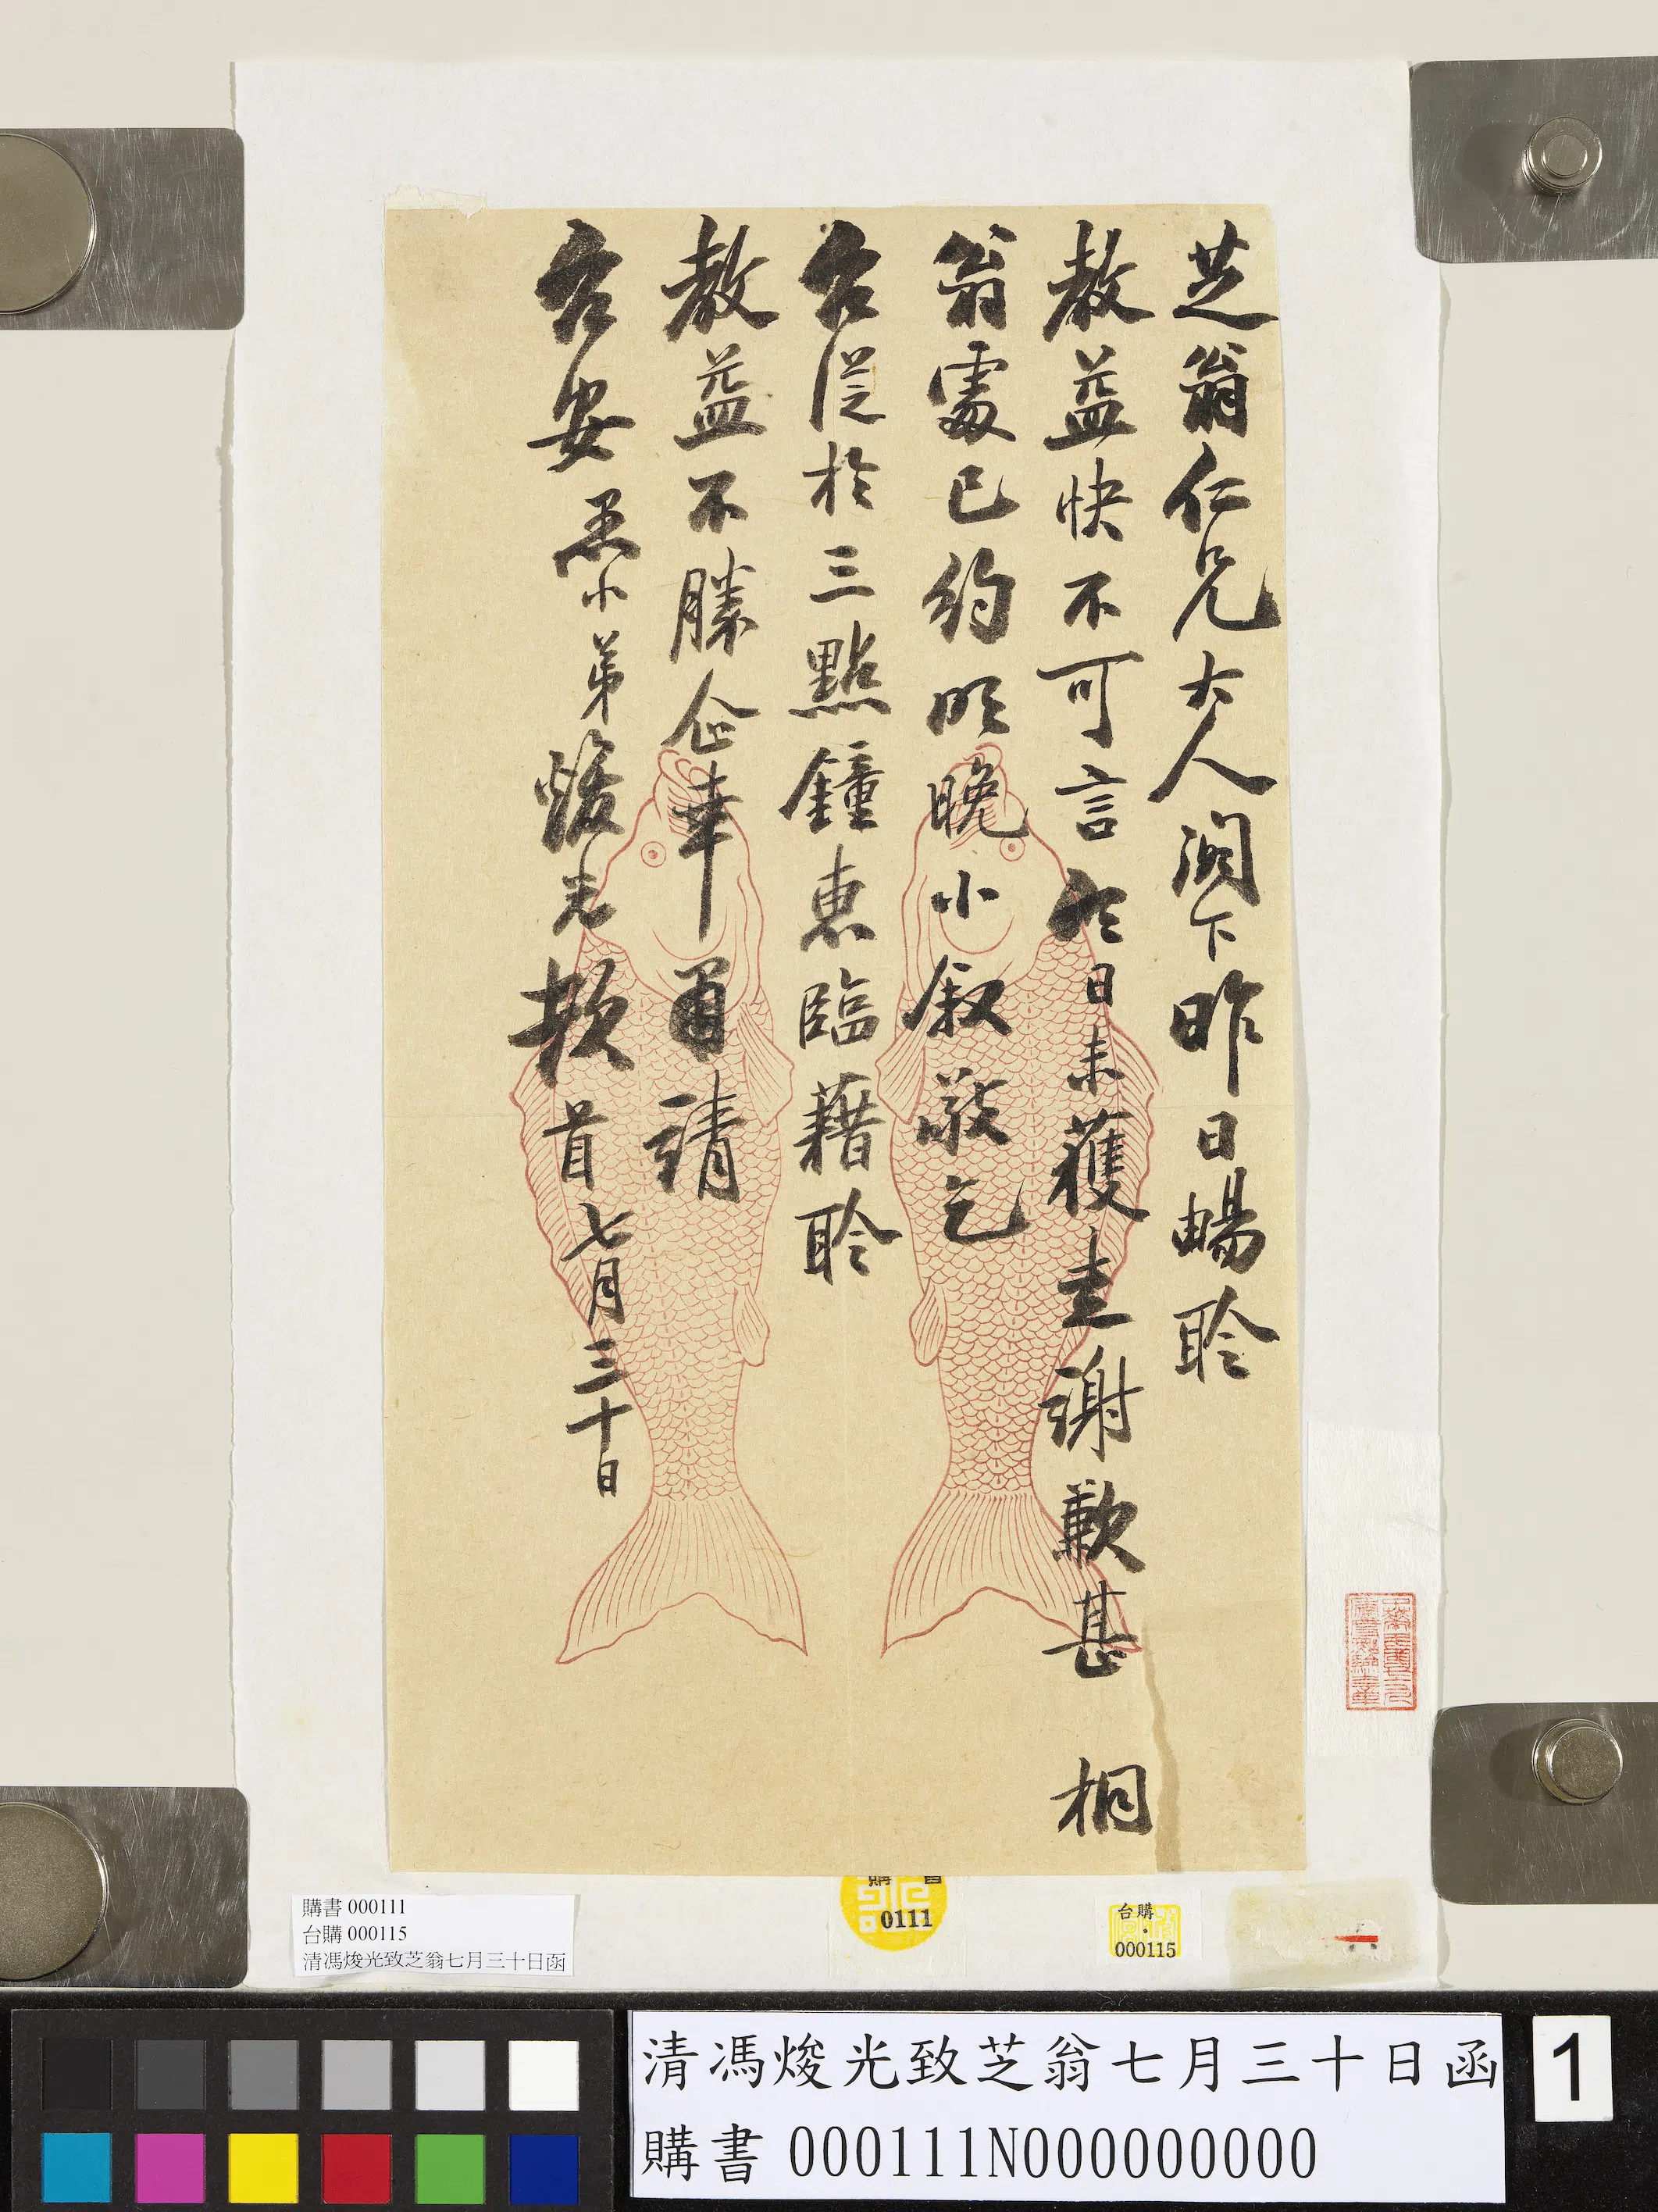 芝翁仁兄大人閣下昨日暢聆
教益快不可言今日未獲走謝歉甚 桐
翁處已約明晚小敘敬乞
台從於三點鐘惠臨藉聆
教益不勝企幸肅請
台安 愚小弟焌光頓首七月三十日
購書 000111
台購 000115
清馮焌光致芝翁七月三十日函
購 書
0111
台購
000115
清馮焌光致芝翁七月三十日函
購書 000111N000000000
1